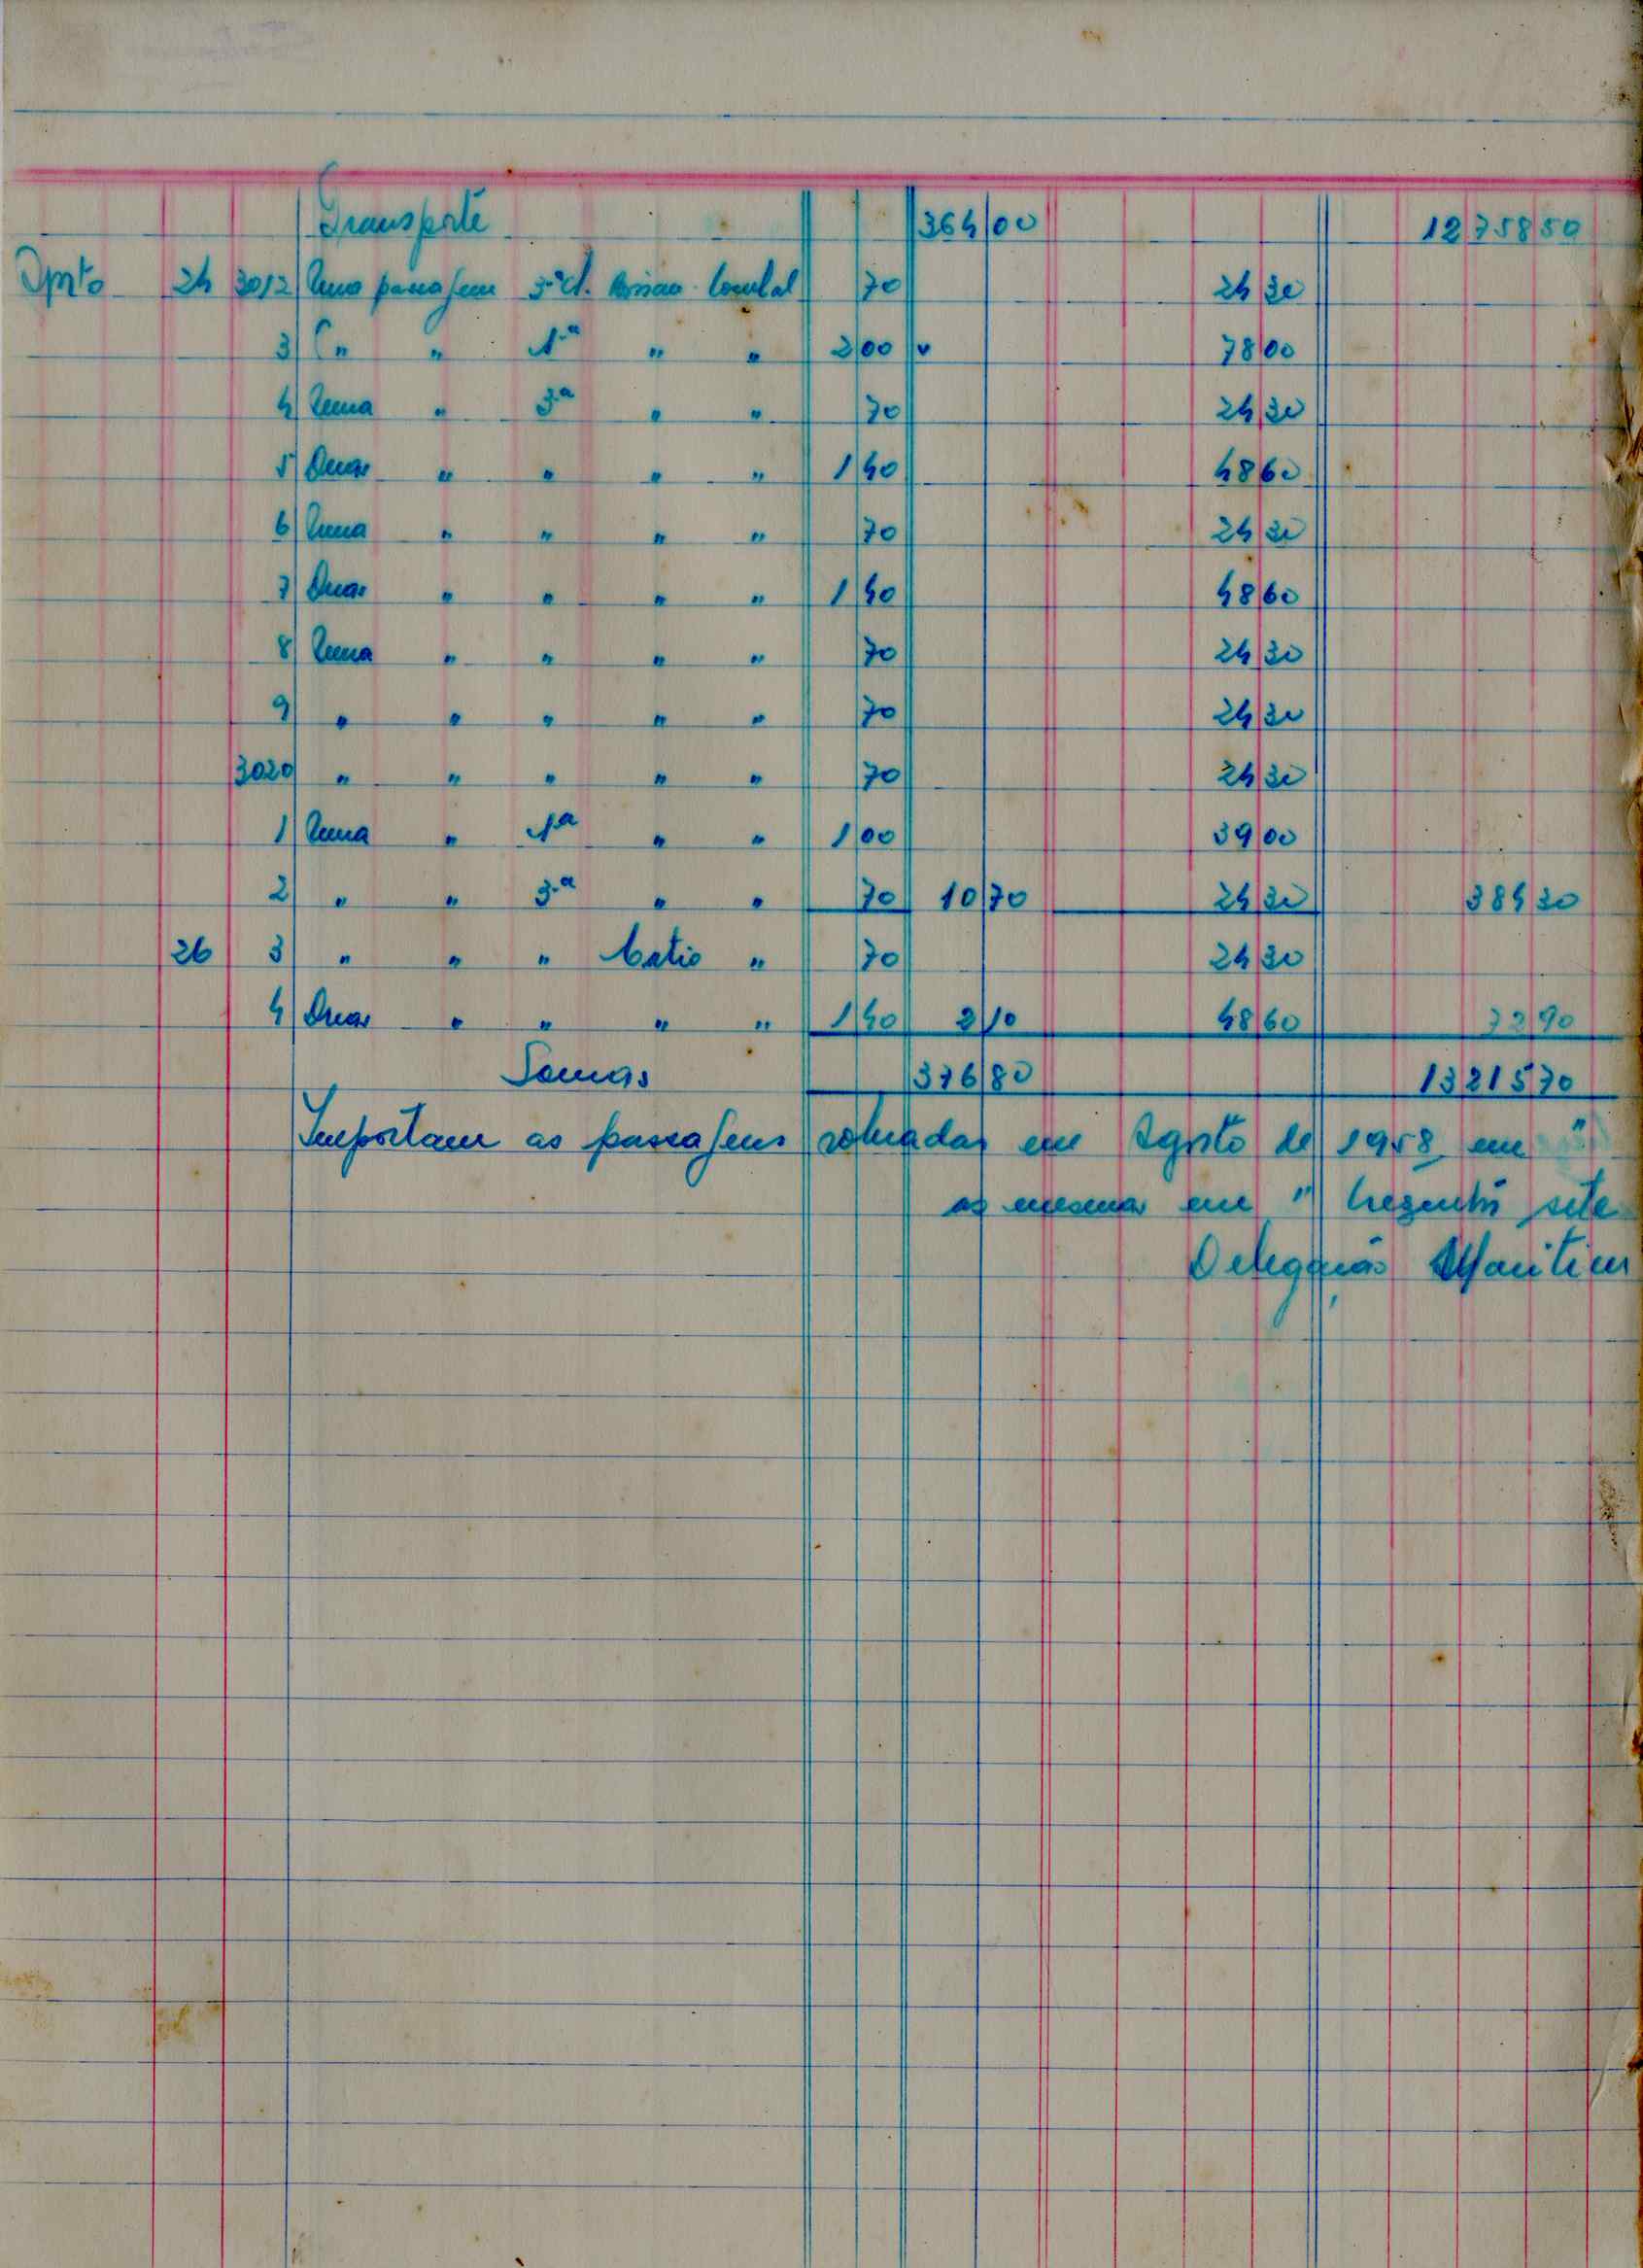 Transporte 364 00 12 758 50
Agosto 24 3012 Uma passagem 3.ª cl. Bissau 70 24 30
3 " " 1.ª " " 2 00 " 78 00
4 Uma " 3.ª " " 70 24 30
5 Duas " " " " 1 40 48 60
6 Uma " " " " 70 24 30
7 Duas " " " " 1 40 48 60
8 Uma " " " " 70 24 30
9 " " " " " 70 24 30
3020 " " " " " 70 24 30
1 Uma " 1.ª " " 1 00 39 00
2 " " 3.ª " " 70 10 70 24 30 384 30
26 3 " " " Catió " 70 24 30
4 Duas " " " " 1 40 2 10 48 60 72 90
Somas 376 80 13 215 70
Importam as passagens em Agosto de 1958 em "
as mesmas em " trezentos sete
Delegação Marítim